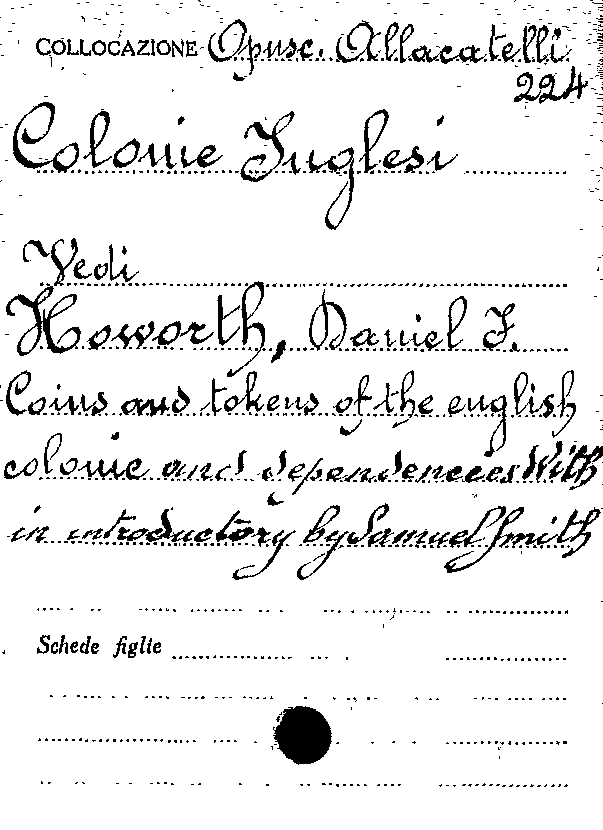 COLLOCAZIONE Opusc. Allacatelli
224
Colonie Inglesi
Vedi
Howorth, Daniel F.
Coins and tokens of the english
colonie and dependencies With
in introductory by Samuel Smith
Schede figlie